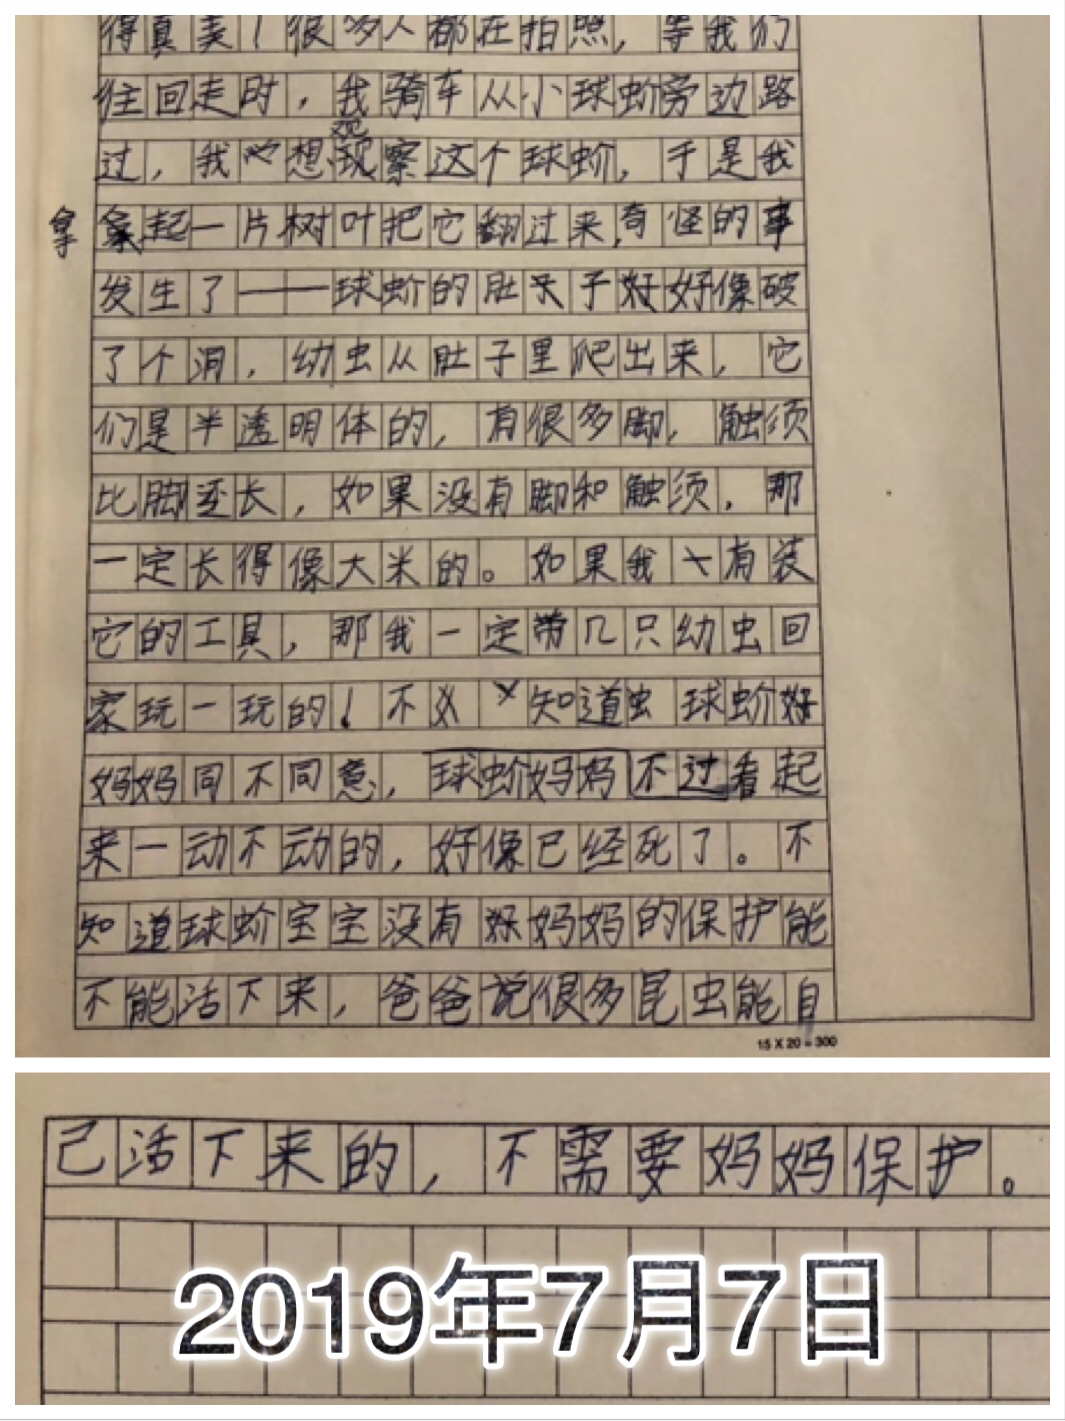 得真美！很多人都在拍照，等我们
往回走时，我骑车从小球蚧旁边路
观
过，我心想现察这个球蚧，于是我
拿
拿起一片树叶把它翻过来，奇怪的事
发生了——球蚧的肚子好好像破
了个洞，幼虫从肚子里爬出来，它
们是半透明体的，有很多脚，触须
比脚还长，如果没有脚和触须，那
一定长得像大米的。如果我有装
它的工具，那我一定带几只幼虫回
家玩一玩的！不知道虫球蚧好
妈妈同不同意，球蚧妈妈不过看起
来一动不动的，好像已经死了。不
知道球蚧宝宝没有好妈妈的保护能
不能活下来，爸爸说很多昆虫能自
15 X 20 = 300
己活下来的，不需要妈妈保护。
2019年7月7日